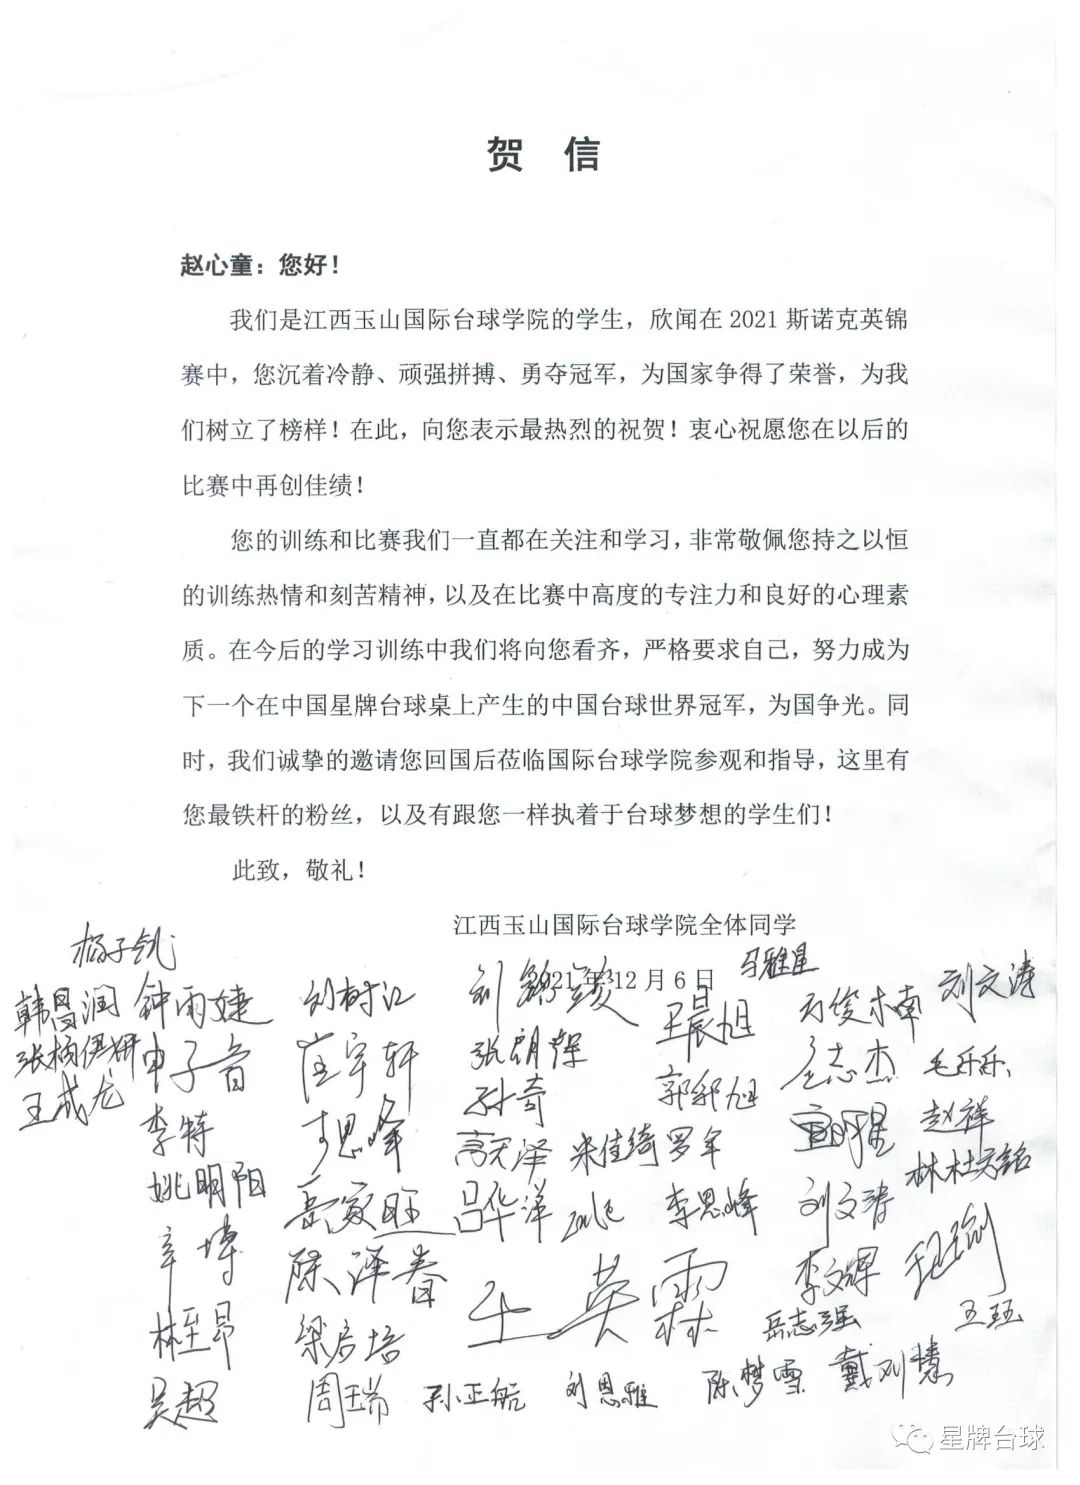 贺 信
赵心童：您好！
我们是江西玉山国际台球学院的学生，欣闻在 2021 斯诺克英锦
赛中，您沉着冷静、顽强拼搏、勇夺冠军，为国家争得了荣誉，为我
们树立了榜样！在此，向您表示最热烈的祝贺！衷心祝愿您在以后的
比赛中再创佳绩！
您的训练和比赛我们一直都在关注和学习，非常敬佩您持之以恒
的训练热情和刻苦精神，以及在比赛中高度的专注力和良好的心理素
质。在今后的学习训练中我们将向您看齐，严格要求自己，努力成为
下一个在中国星牌台球桌上产生的中国台球世界冠军，为国争光。同
时，我们诚挚的邀请您回国后莅临国际台球学院参观和指导，这里有
您最铁杆的粉丝，以及有跟您一样执着于台球梦想的学生们！
此致，敬礼！
江西玉山国际台球学院全体同学
2021 年 12 月 6 日
马雅星
韩昌润 钟雨婕 刘树江 王晨旭 刘文涛
申子音 张朗
王成龙 孙奇 郭郅旭 志杰 毛乐乐
李特 思峰 高天泽 朱佳绮 罗军 赵祥
姚明阳 岳家旺 吕华洋 李思峰 刘文涛 林杜文铭
辛博 陈泽睿 王英霖 李文辉
林至昂 梁启培 岳志强 王珏
吴超 周瑞 孙正航 刘恩雅 陈梦雪 戴刘慧
星牌台球